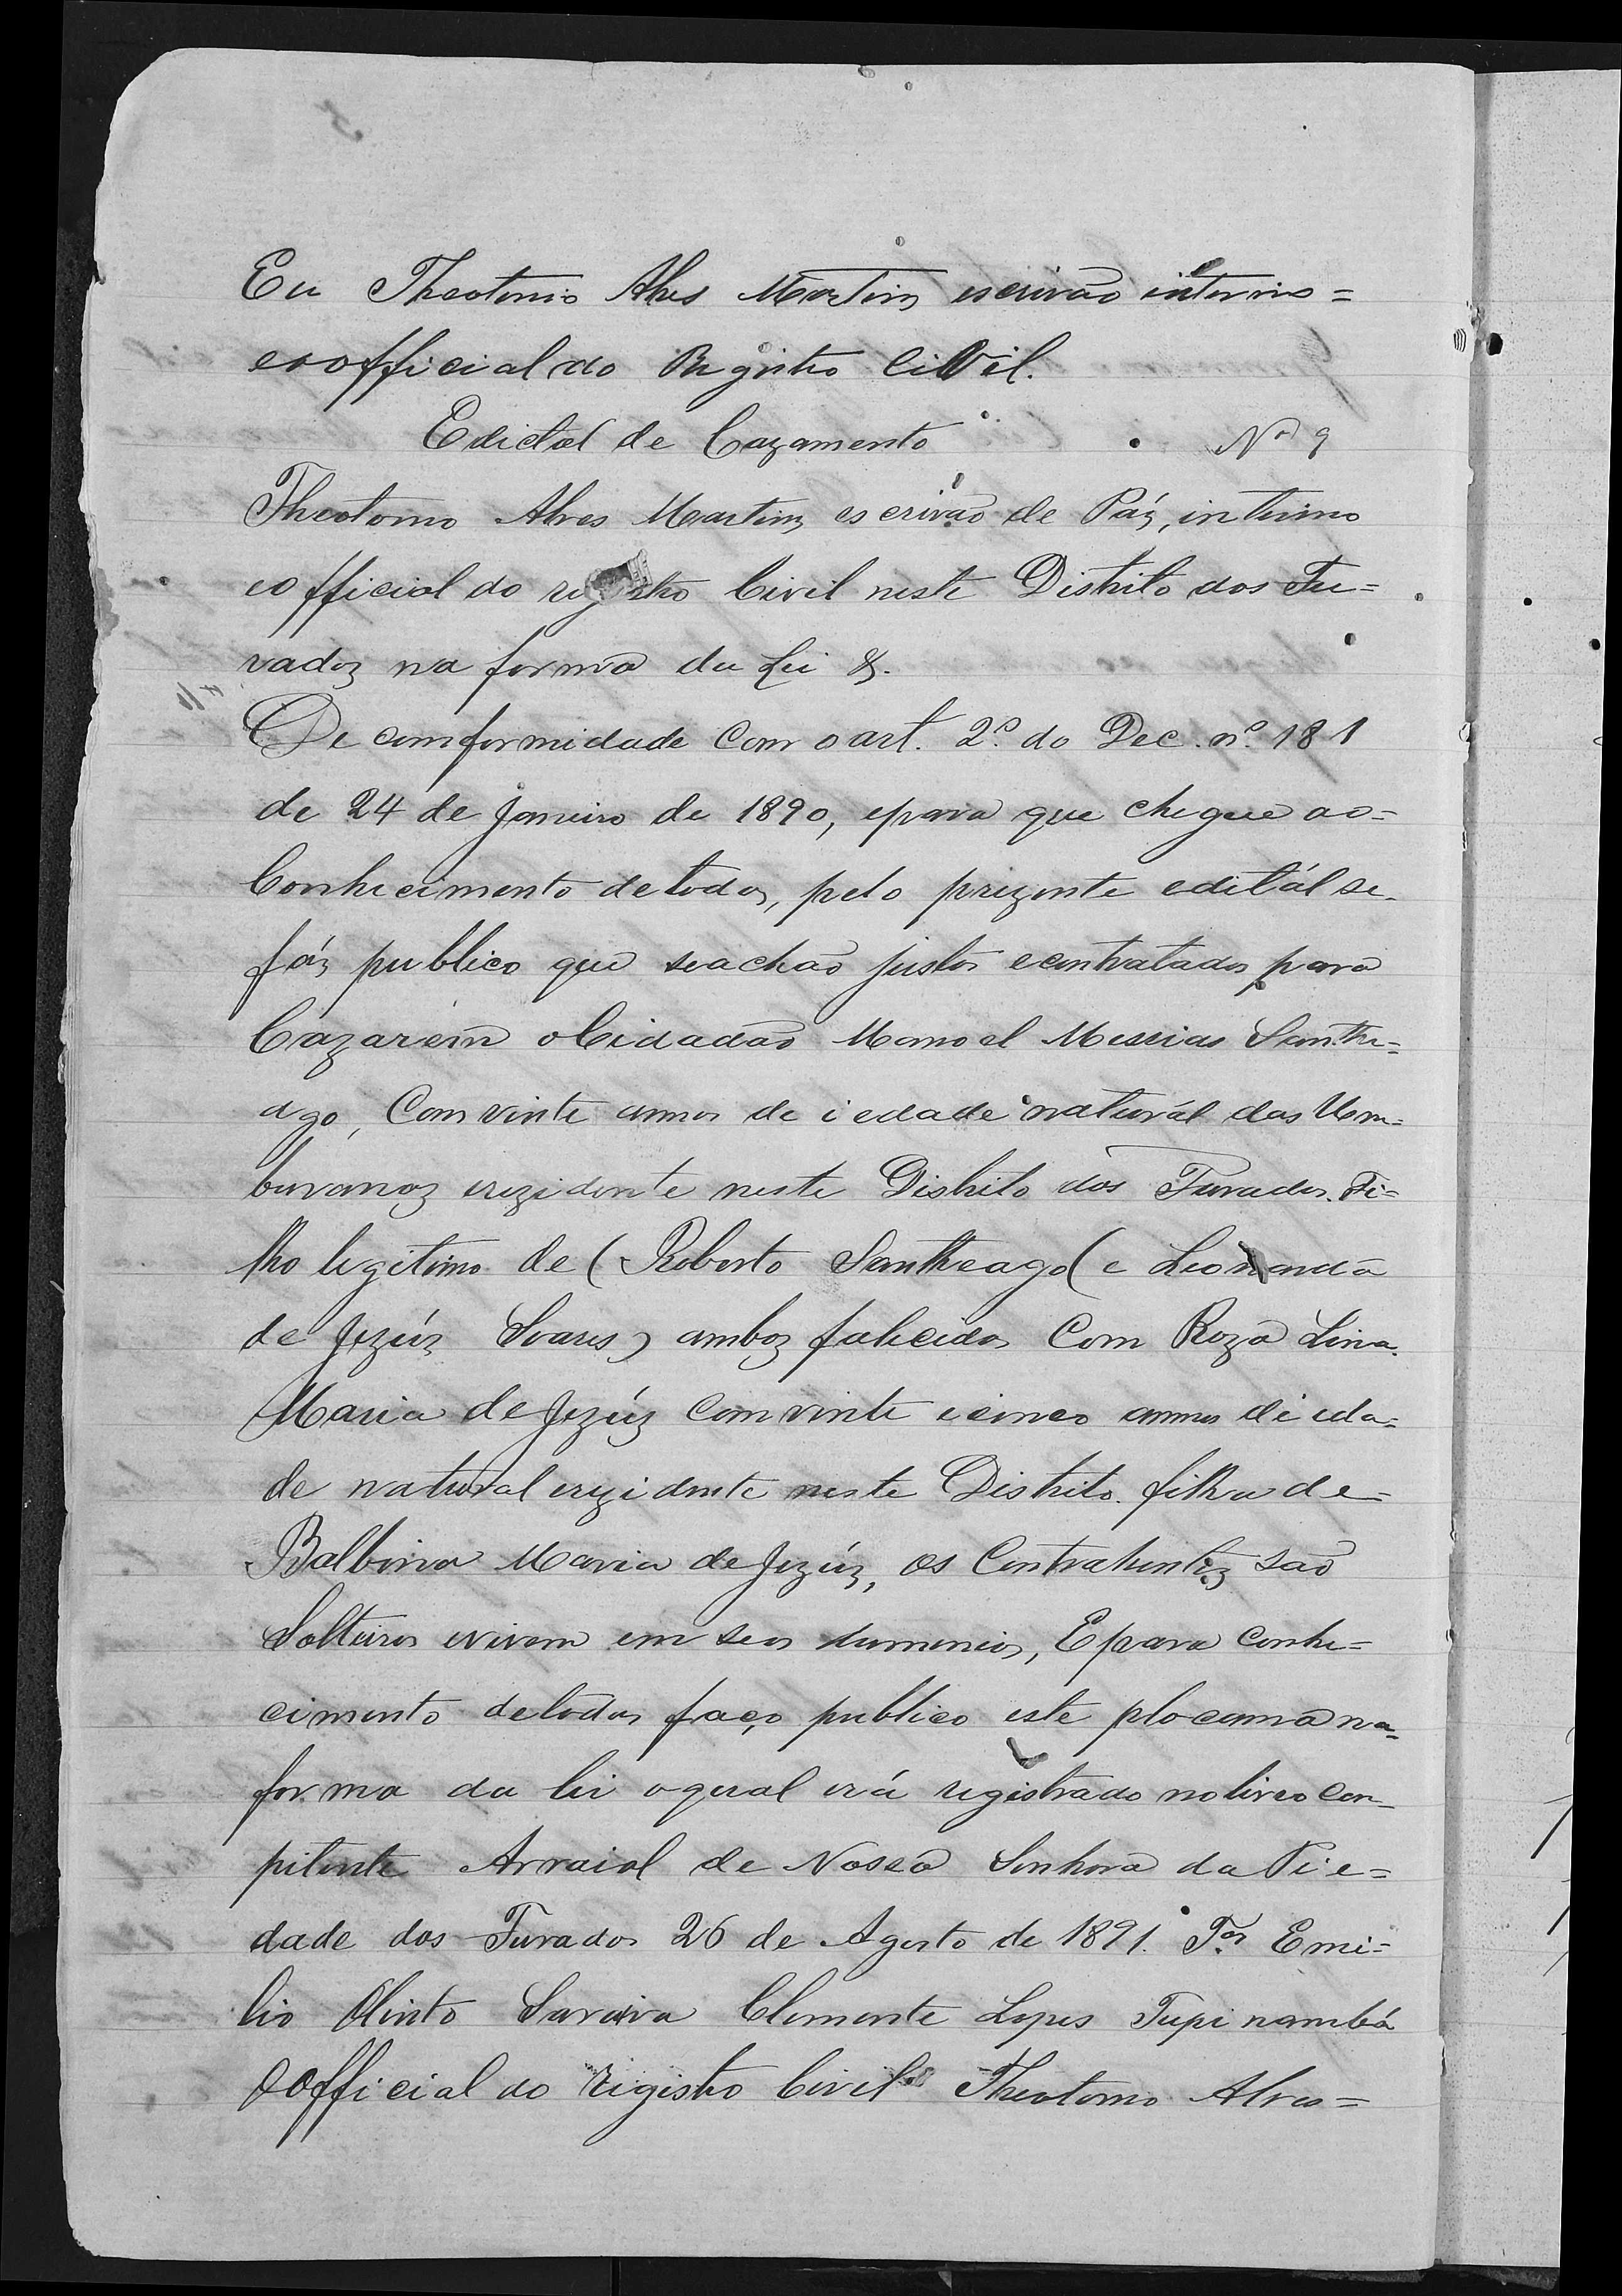 Eu Theotonio Alves Martins escrivão interino=
eoofficial do Registro Civil.
Edictal de Cazamento Nº 9
Theotonio Alves Martins escrivão de Páz, interino
eofficial do registro Civil neste Distrito dos Fu=
rados na forma da Lei &.
De comformidade com o art. 2º do Dec. nº 181
de 24 de Janeiro de 1890, epara que chegue ao=
Conhecimento detodos, pelo prezente edital se
fáz publico que seachão justos econtratados para
Cazarem oCidadão Manoel Messias Santhe=
ago, Com vinte annos de iedade naturál das Um=
buranas erezidente neste Distrito dos Furados. Fi=
lho legitimo de (Roberto Santheago (e Leonarda
de Jezús Soares) ambos falicidos Com Roza Lina
Maria de Jezús Com vinte ecinco annos de eda=
de natural erezidente neste Distrito. filha de=
Balbina Maria de Jezús, os Contratentes são
Solteiros evivem em seos dumenios, Epara conhe=
cimento detodos faço publico este plocama na=
forma da lei oqual irá registrado nolivro con=
pitente Arraial de Nossa Senhora da Pie=
dade dos Furados 26 de Agosto de 1891. Tas Emi=
lio Olinto Saraiva Clemente Lopes Tupinambá
OOfficial do Registro Civil Theotonio Alves=